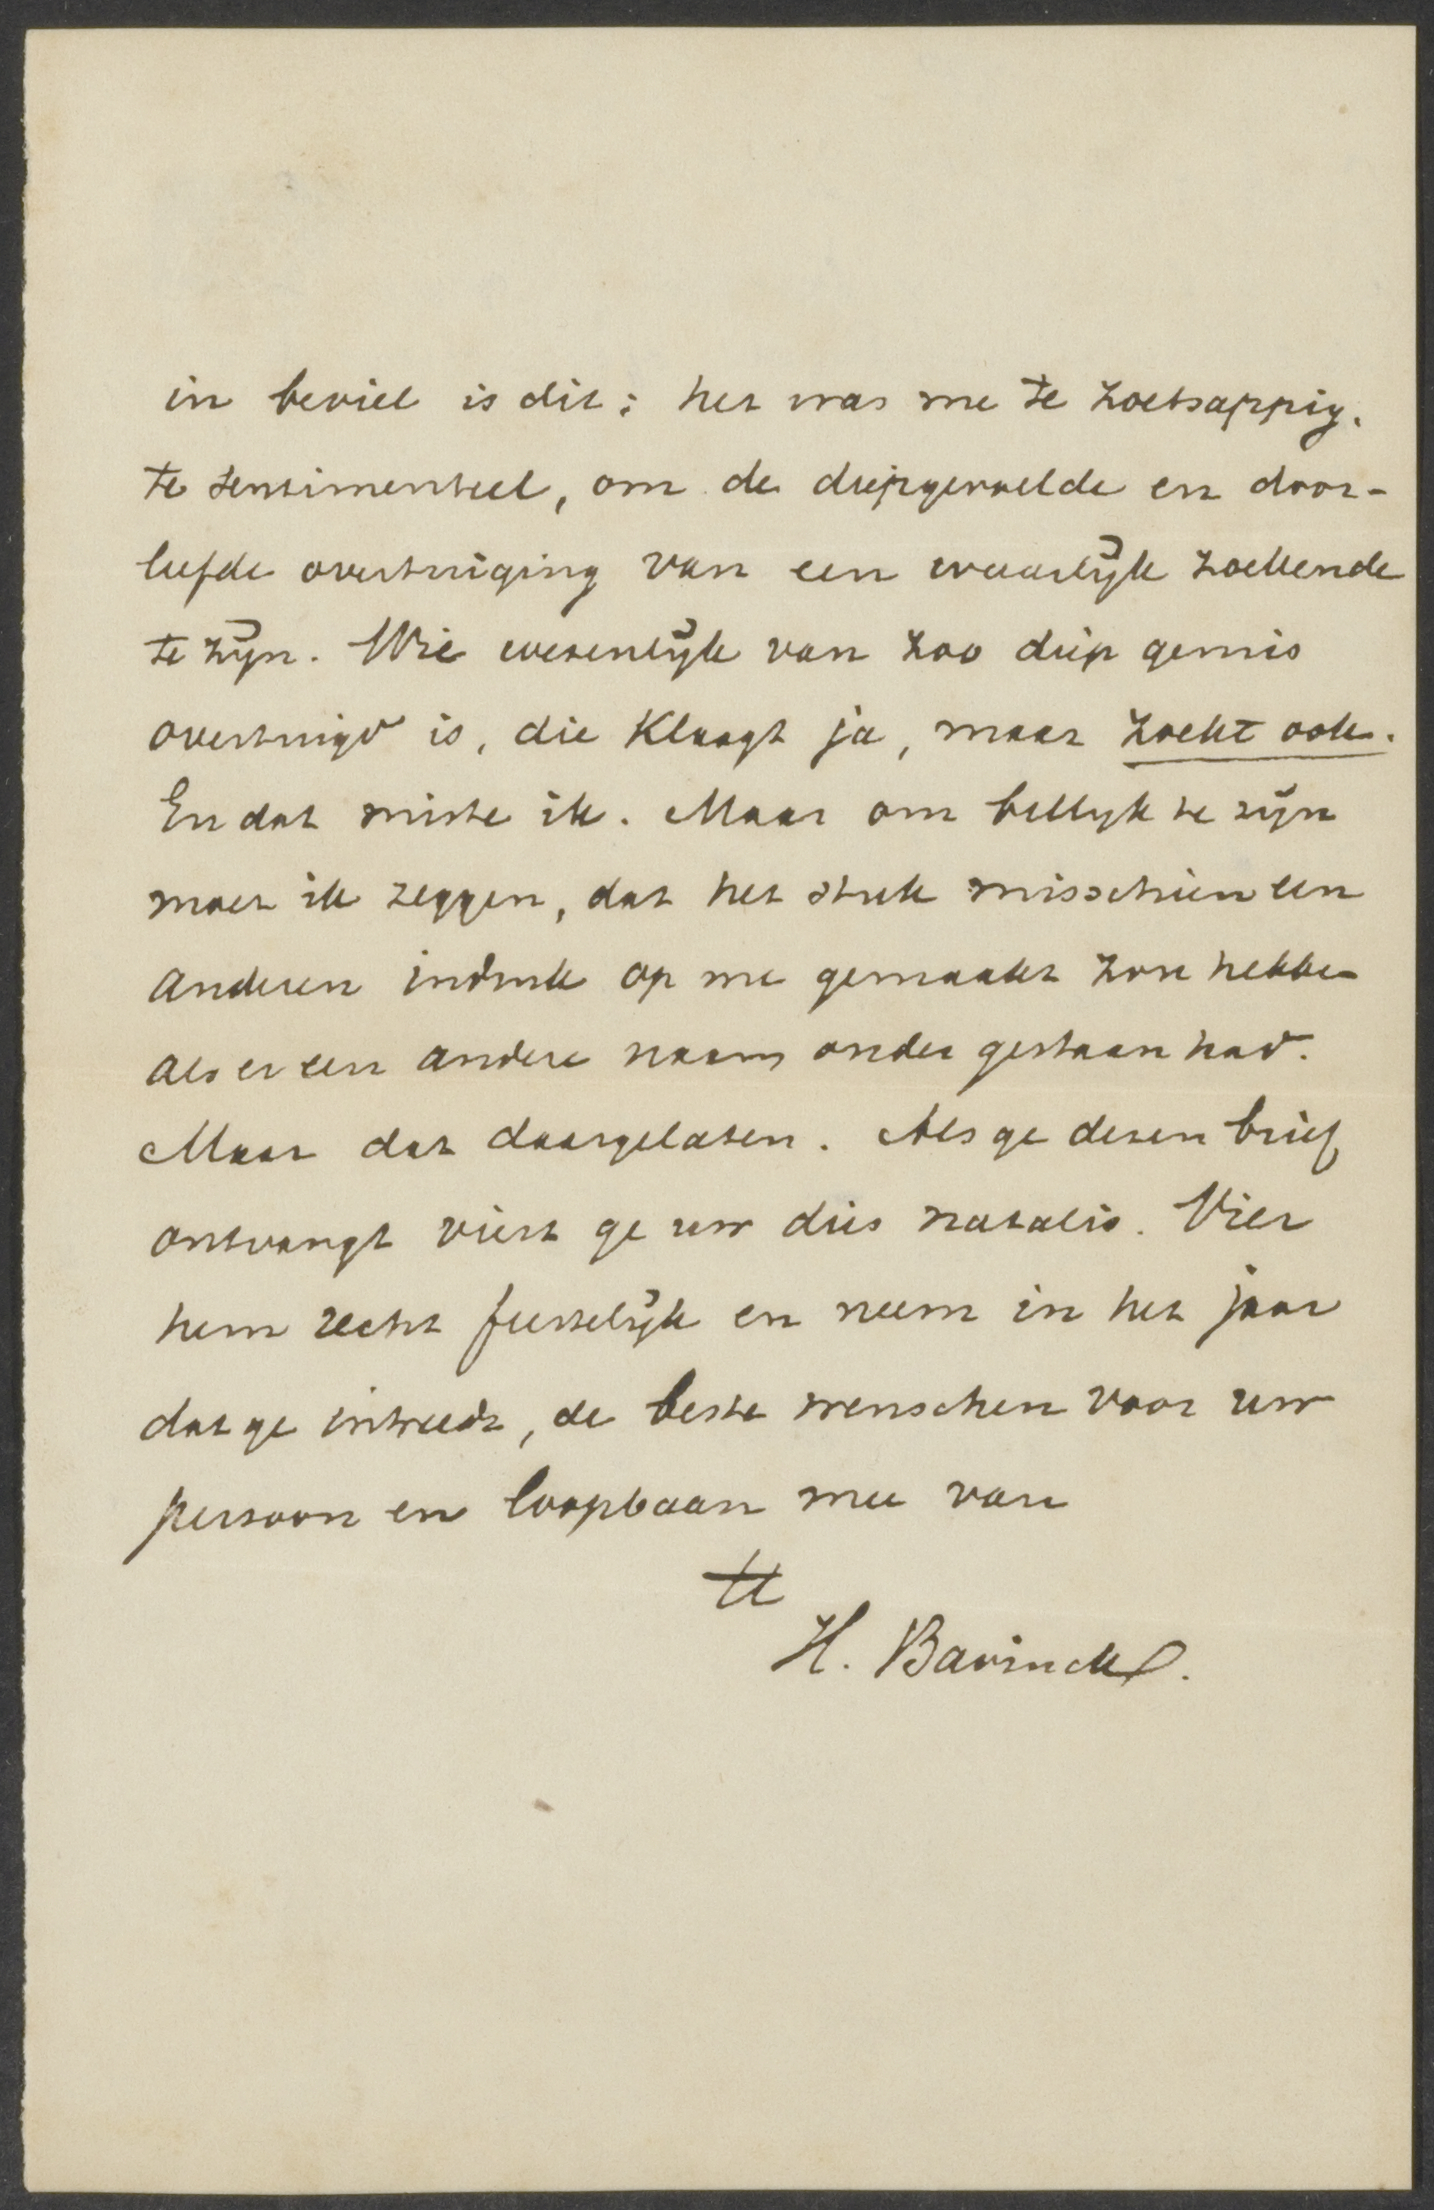 in beviel is dit: het was me te zoetsappig.
te sentimenteel, om de diepgevoelde en door-
leefde overtuiging van een waarlijk zoekende
te zijn. Wie wezenlijk van zoo diep gemis
overtuigd is, die klaagt ja, maar zoekt ook.
En dat miste ik. Maar om billijk te zijn
moet ik zeggen, dat het stuk misschien een
anderen indruk op me gemaakt zou hebben
als er een andere naam onder gestaan had.
Maar dat daargelaten. Als ge dezen brief
ontvangt viert ge uw dies natalis. Vier
hem recht feestelijk en neem in het jaar
dat ge intreedt, de beste wenschen voor uw
persoon en loopbaan mee van
tt
H. Bavinck.